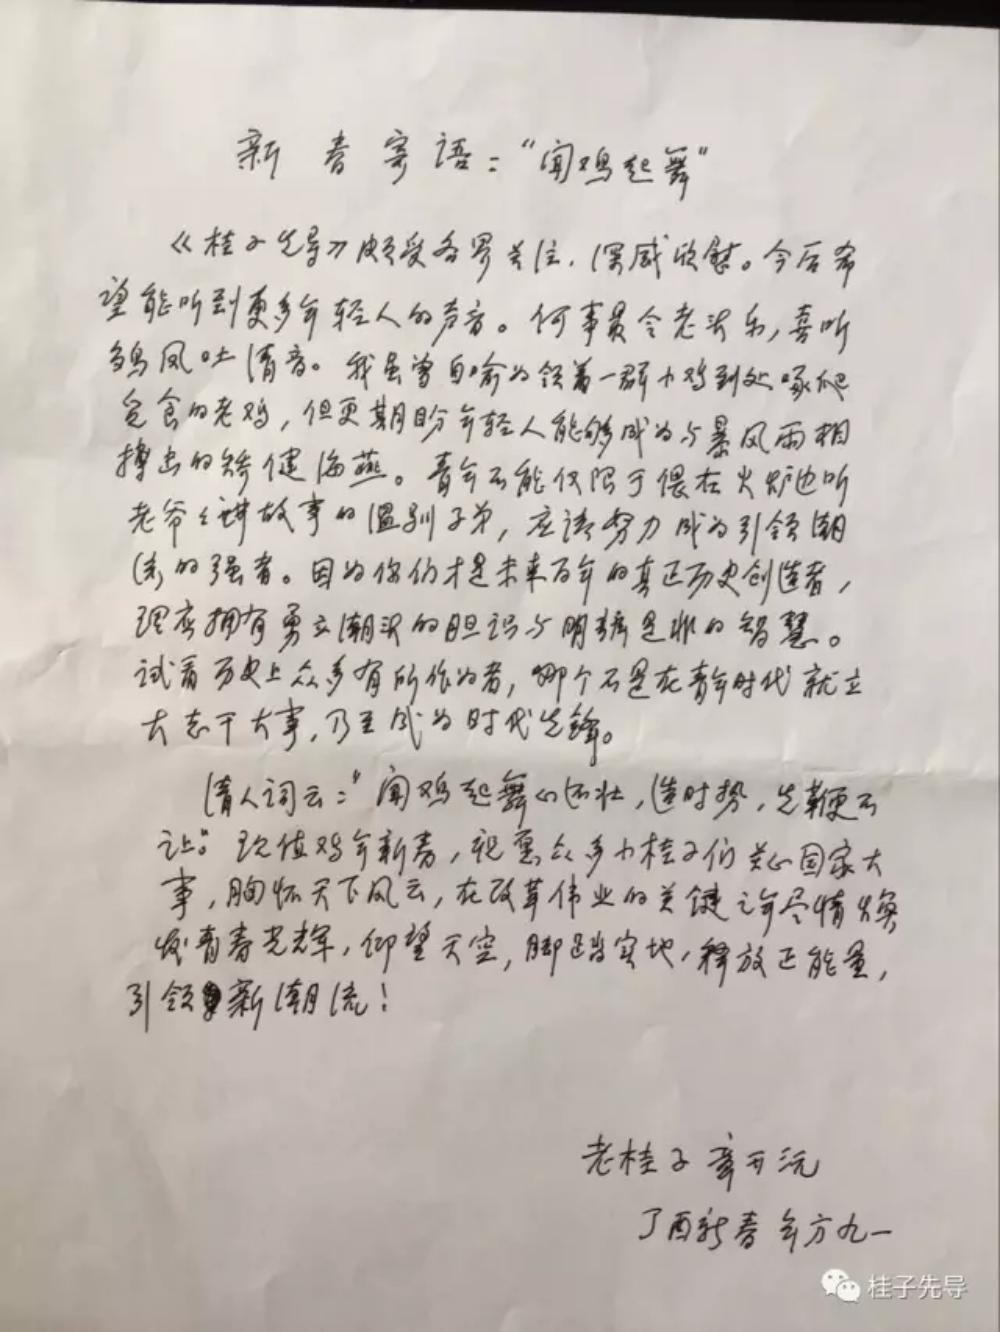 新春寄语："闻鸡起舞"
《桂子先导》颇受各界关注，深感欣慰。今后希
望能听到更多年轻人的声音。何事最令老汉乐，喜听
雏凤吐清音。我虽曾自喻为领着一群小鸡到处啄爬
觅食的老鸡，但更期盼年轻人能够成为与暴风雨相
搏击的矫健海燕。青年不能仅限于偎在火炉边听
老爷爷讲故事的温驯子弟，应该努力成为引领潮
流的强者。因为你们才是未来百年的真正历史创造者，
理应拥有勇立潮头的胆识与明辨是非的智慧。
试看历史上众多有所作为者，哪个不是在青年时代就立
大志干大事，乃至成为时代先锋。
清人词云："闻鸡起舞心还壮，造时势，先鞭不
让。"现值鸡年新春，祝愿众多小桂子们关心国家大
事，胸怀天下风云，在改革伟业的关键之年尽情焕
发青春光辉，仰望天空，脚踏实地，释放正能量，
引领新潮流！
老桂子章开沅
丁酉新春年方九一
桂子先导